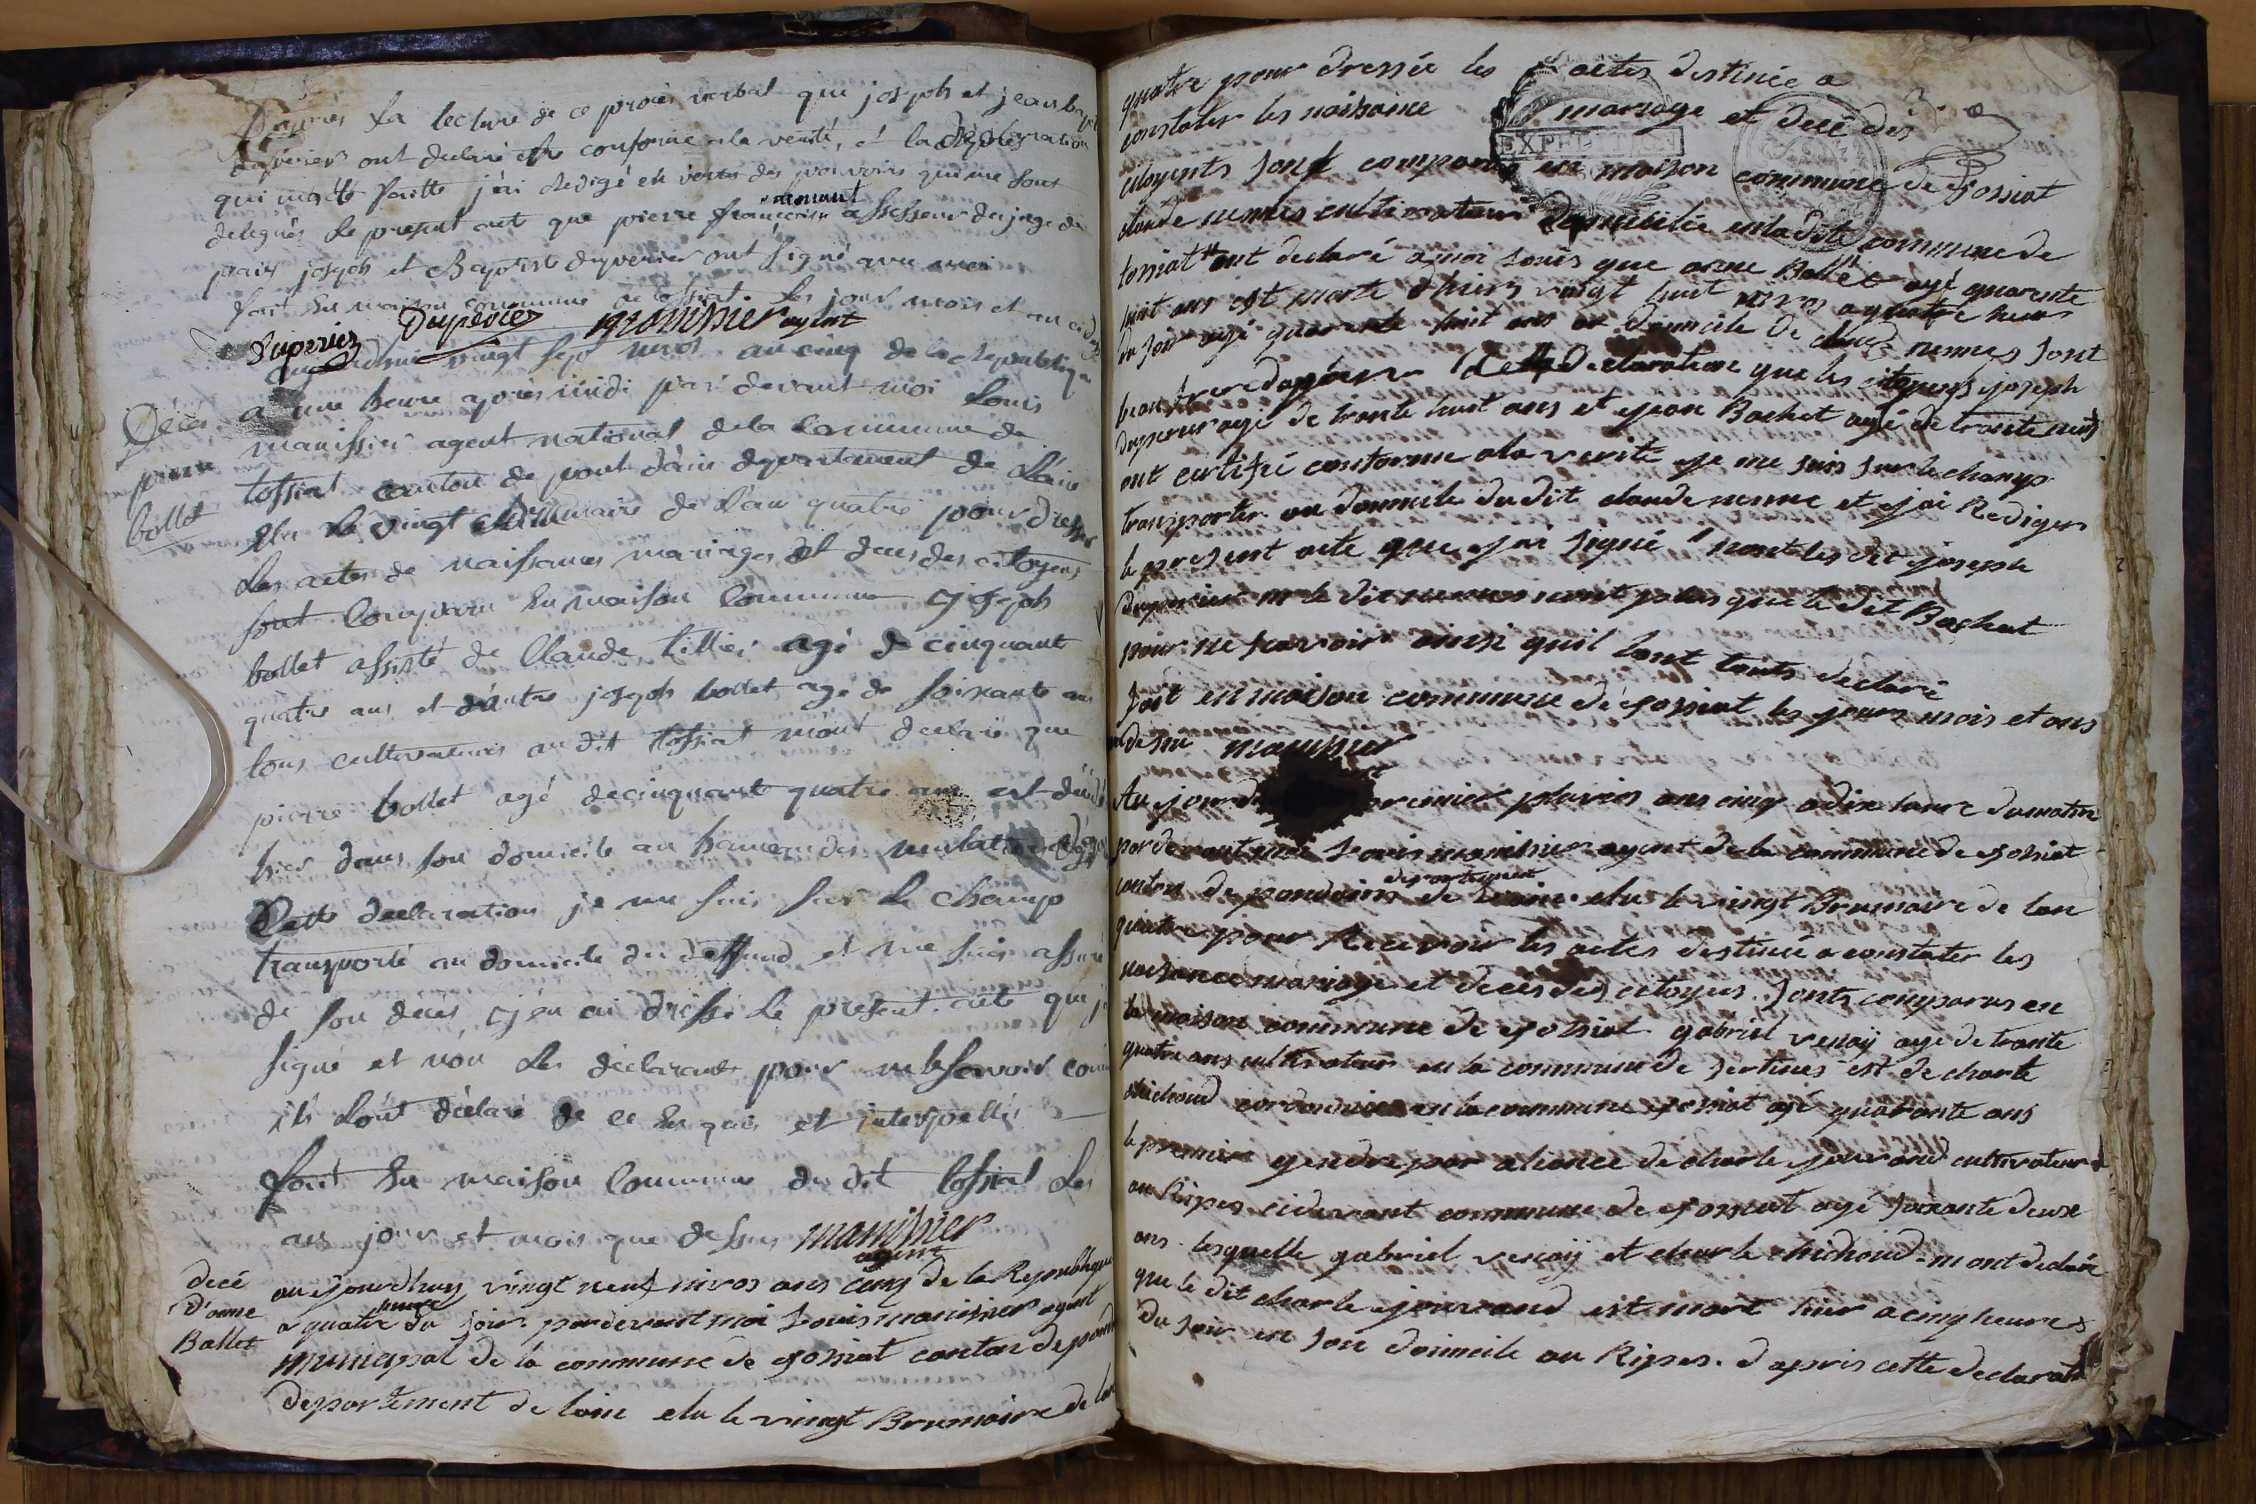 D'apres la lecture de ce proces verbal que joseph et jean bap
Duperier ont declaré etre conforme a la verité, et la declaration
qui ma ete faitte j'ai redigé en vertu des pouvoirs qui me sont
delegués le present act que pierre françois assesseur du juge de
paix joseph et Baptiste duperier ont signé avec moi
fait en maison commune de tossiat les jour mois et an
Duperiez Duperiez manissier agent
aujourdhui vingt sept nivos an cinq de la republique
a une heure apres midi par devant moi Louis
manissier agent national de la Commune de
tossiat canton de pont d'ain departement de L'ain
Elu le vingt brumaire de l'an quatre pour dresser
Les actes de naissances mariages et deces des citoyens
sont comparu en maison Commune joseph
bollet assisté de Claude tillier agé de cinquant
quatre ans et d'autre joseph bollet agé de soixante ans
tous cultivateurs au dit tossiat m'ont declaré que
pierre bollet agé de cinquante quatre ans est décédé
hier dans son domicile au hameau des
Cette declaration je me suis sur le champ
transporté au domicile du deffund et me suis assuré
de son deces j'en ai dressé le present acte que j'ai
signé et non les déclarants pour ne savoir comme
ils l'ont déclaré de ce enquis et interpellés
fait En maison Commune du dit tossiat Les
ans jour et mois que dessus manissier
agent
Décès
pierre
bollet
decé
d'anne
Ballet
aujourdhuy vingt neuf nivos ans cinq de la Republique
a quatre heure du soir pardevant moi Louis manissier agent
municipal de la commune de tossiat canton de pond
departement de lain elu le vingt Brumaire de lan
quatre pour dressée les actes destinée a
constater les naissance mariage et decé des
citoyents sont comparus en maison commune de tossiat
claude nennes cultivateur domicilée en la dite commune de
tossiat ont declaré a moi Louis que anne Ballet agé quarente
huit ans est morte dhiers vingt huit nivos a quatre heure
du soir agé quarente huit ans au domicile de claude nennes sont
beau frere dapres cette declaration que les citoyens joseph
duperier agé de trante huit ans et jean Bachet agé de trante
ont certifié conforme a la verité je me suis sur le champs
transporter au domicile du dit claude nenne et jai Rediger
le present acte que jai signé nont les dit joseph
duperier ni le dit nennes nont plus que le dit Bachet
pour ne scavoir ainsi quil lont touts declaré
fait en maison commune de tossiat les jours mois et ans
dessu manissier
Aujourd premier pluvios ans cinq a dix heure du matin
pardevant moi Louis manissier agent de la commune de tossiat
canton de pondain departement de lain elu le vingt Brumaire de lan
quatre pour Recevoir les actes destinée a constater les
naissance mariage et decés des citoyens. Sonts comparus en
la maison commune de tossiat gabriel venay agé de trante
quatre ans cultivateur en la commune de Sertines est de charle
chichoud cordonnier en la commune tossiat agé quarante ans
le premier gendre par aliance de charle jouvrand cultivateur
au Ripes cidevant commune de tossiat agé soixante deux
ans. lesquelle gabriel venay et charle chichoud mont declaré
que le dit charle jouvrand est mort hier a cinq heures
du soir en son domicile au Ripes. dapris cette declaration